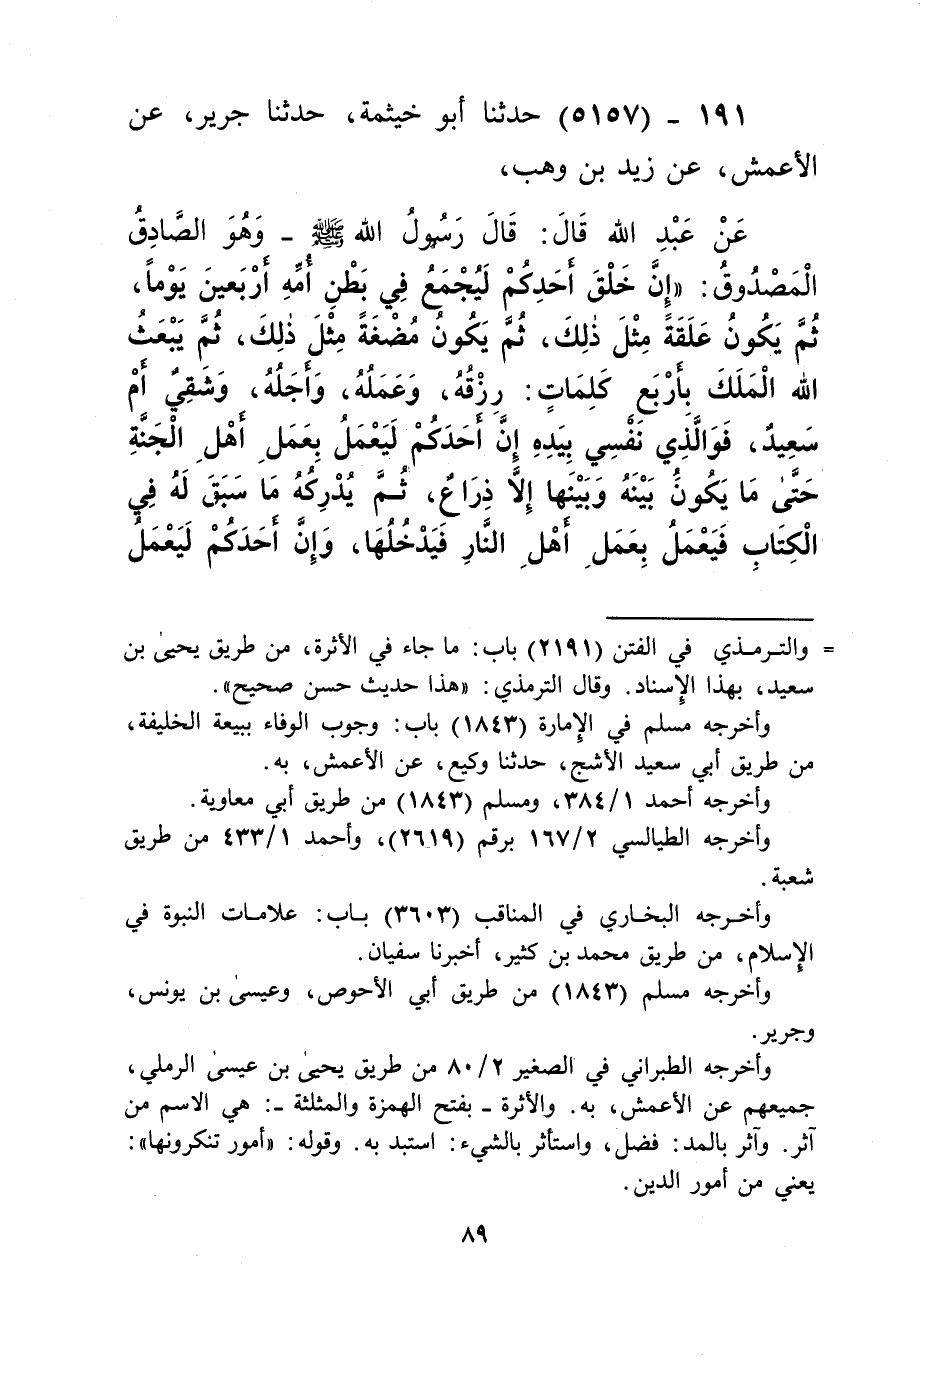 ١٩١ ـ (٥١٥٧) حدثنا أبو خيثمة، حدثنا جرير، عن
الأعمش، عن زيد بن وهب،
عَنْ عَبْدِ الله قَالَ: قَالَ رَسُولُ الله ﷺ ـ وَهُوَ الصَّادِقُ
الْمَصْدُوقُ: «إِنَّ خَلْقَ أَحَدِكُمْ لَيُجْمَعُ فِي بَطْنِ أُمِّهِ أَرْبَعينَ يَوْماً،
ثُمَّ يَكُونُ عَلَقَةً مِثْلَ ذٰلِكَ، ثُمَّ يَكُونُ مُضْغَةً مِثْلَ ذٰلِكَ، ثُمَّ يَبْعَثُ
الله الْمَلَكَ بِأَرْبَعِ كَلِمَاتٍ: رِزْقُهُ، وَعَمَلُهُ، وَأَجَلُهُ، وَشَقِيٌ أَمْ
سَعِيدٌ، فَوَالَّذِي نَفْسِي بِيَدِهِ إِنَّ أَحَدَكُمْ لَيَعْمَلُ بِعَمَلِ أَهْلِ الْجَنَّةِ
حَتَّىٰ مَا يَكُونُ بَيْنَهُ وَبَيْنَها إِلَّا ذِرَاعٌ، ثُمَّ يُدْرِكُهُ مَا سَبَقَ لَهُ فِي
الْكِتَابِ فَيَعْمَلُ بِعَمَلِ أَهْلِ النَّارِ فَيَدْخُلُهَا، وَإِنَّ أَحَدَكُمْ لَيَعْمَلُ
= والترمذي في الفتن (٢١٩١) باب: ما جاء في الأثرة، من طريق يحيىٰ بن
سعيد، بهذا الإسناد. وقال الترمذي: «هذا حديث حسن صحيح».
وأخرجه مسلم في الإمارة (١٨٤٣) باب: وجوب الوفاء ببيعة الخليفة،
من طريق أبي سعيد الأشج، حدثنا وكيع، عن الأعمش، به.
وأخرجه أحمد ٣٨٤/١، ومسلم (١٨٤٣) من طريق أبي معاوية.
وأخرجه الطيالسي ١٦٧/٢ برقم (٢٦١٩)، وأحمد ٤٣٣/١ من طريق
شعبة.
وأخرجه البخاري في المناقب (٣٦٠٣) باب: علامات النبوة في
الإسلام، من طريق محمد بن كثير، أخبرنا سفيان.
وأخرجه مسلم (١٨٤٣) من طريق أبي الأحوص، وعيسىٰ بن يونس،
وجرير.
وأخرجه الطبراني في الصغير ٨٠/٢ من طريق يحيىٰ بن عيسىٰ الرملي،
جميعهم عن الأعمش، به. والأثرة ـ بفتح الهمزة والمثلثة ـ: هي الاسم من
آثر. وآثر بالمد: فضل، واستأثر بالشيء: استبد به. وقوله: «أمور تنكرونها»:
يعني من أمور الدين.
٨٩